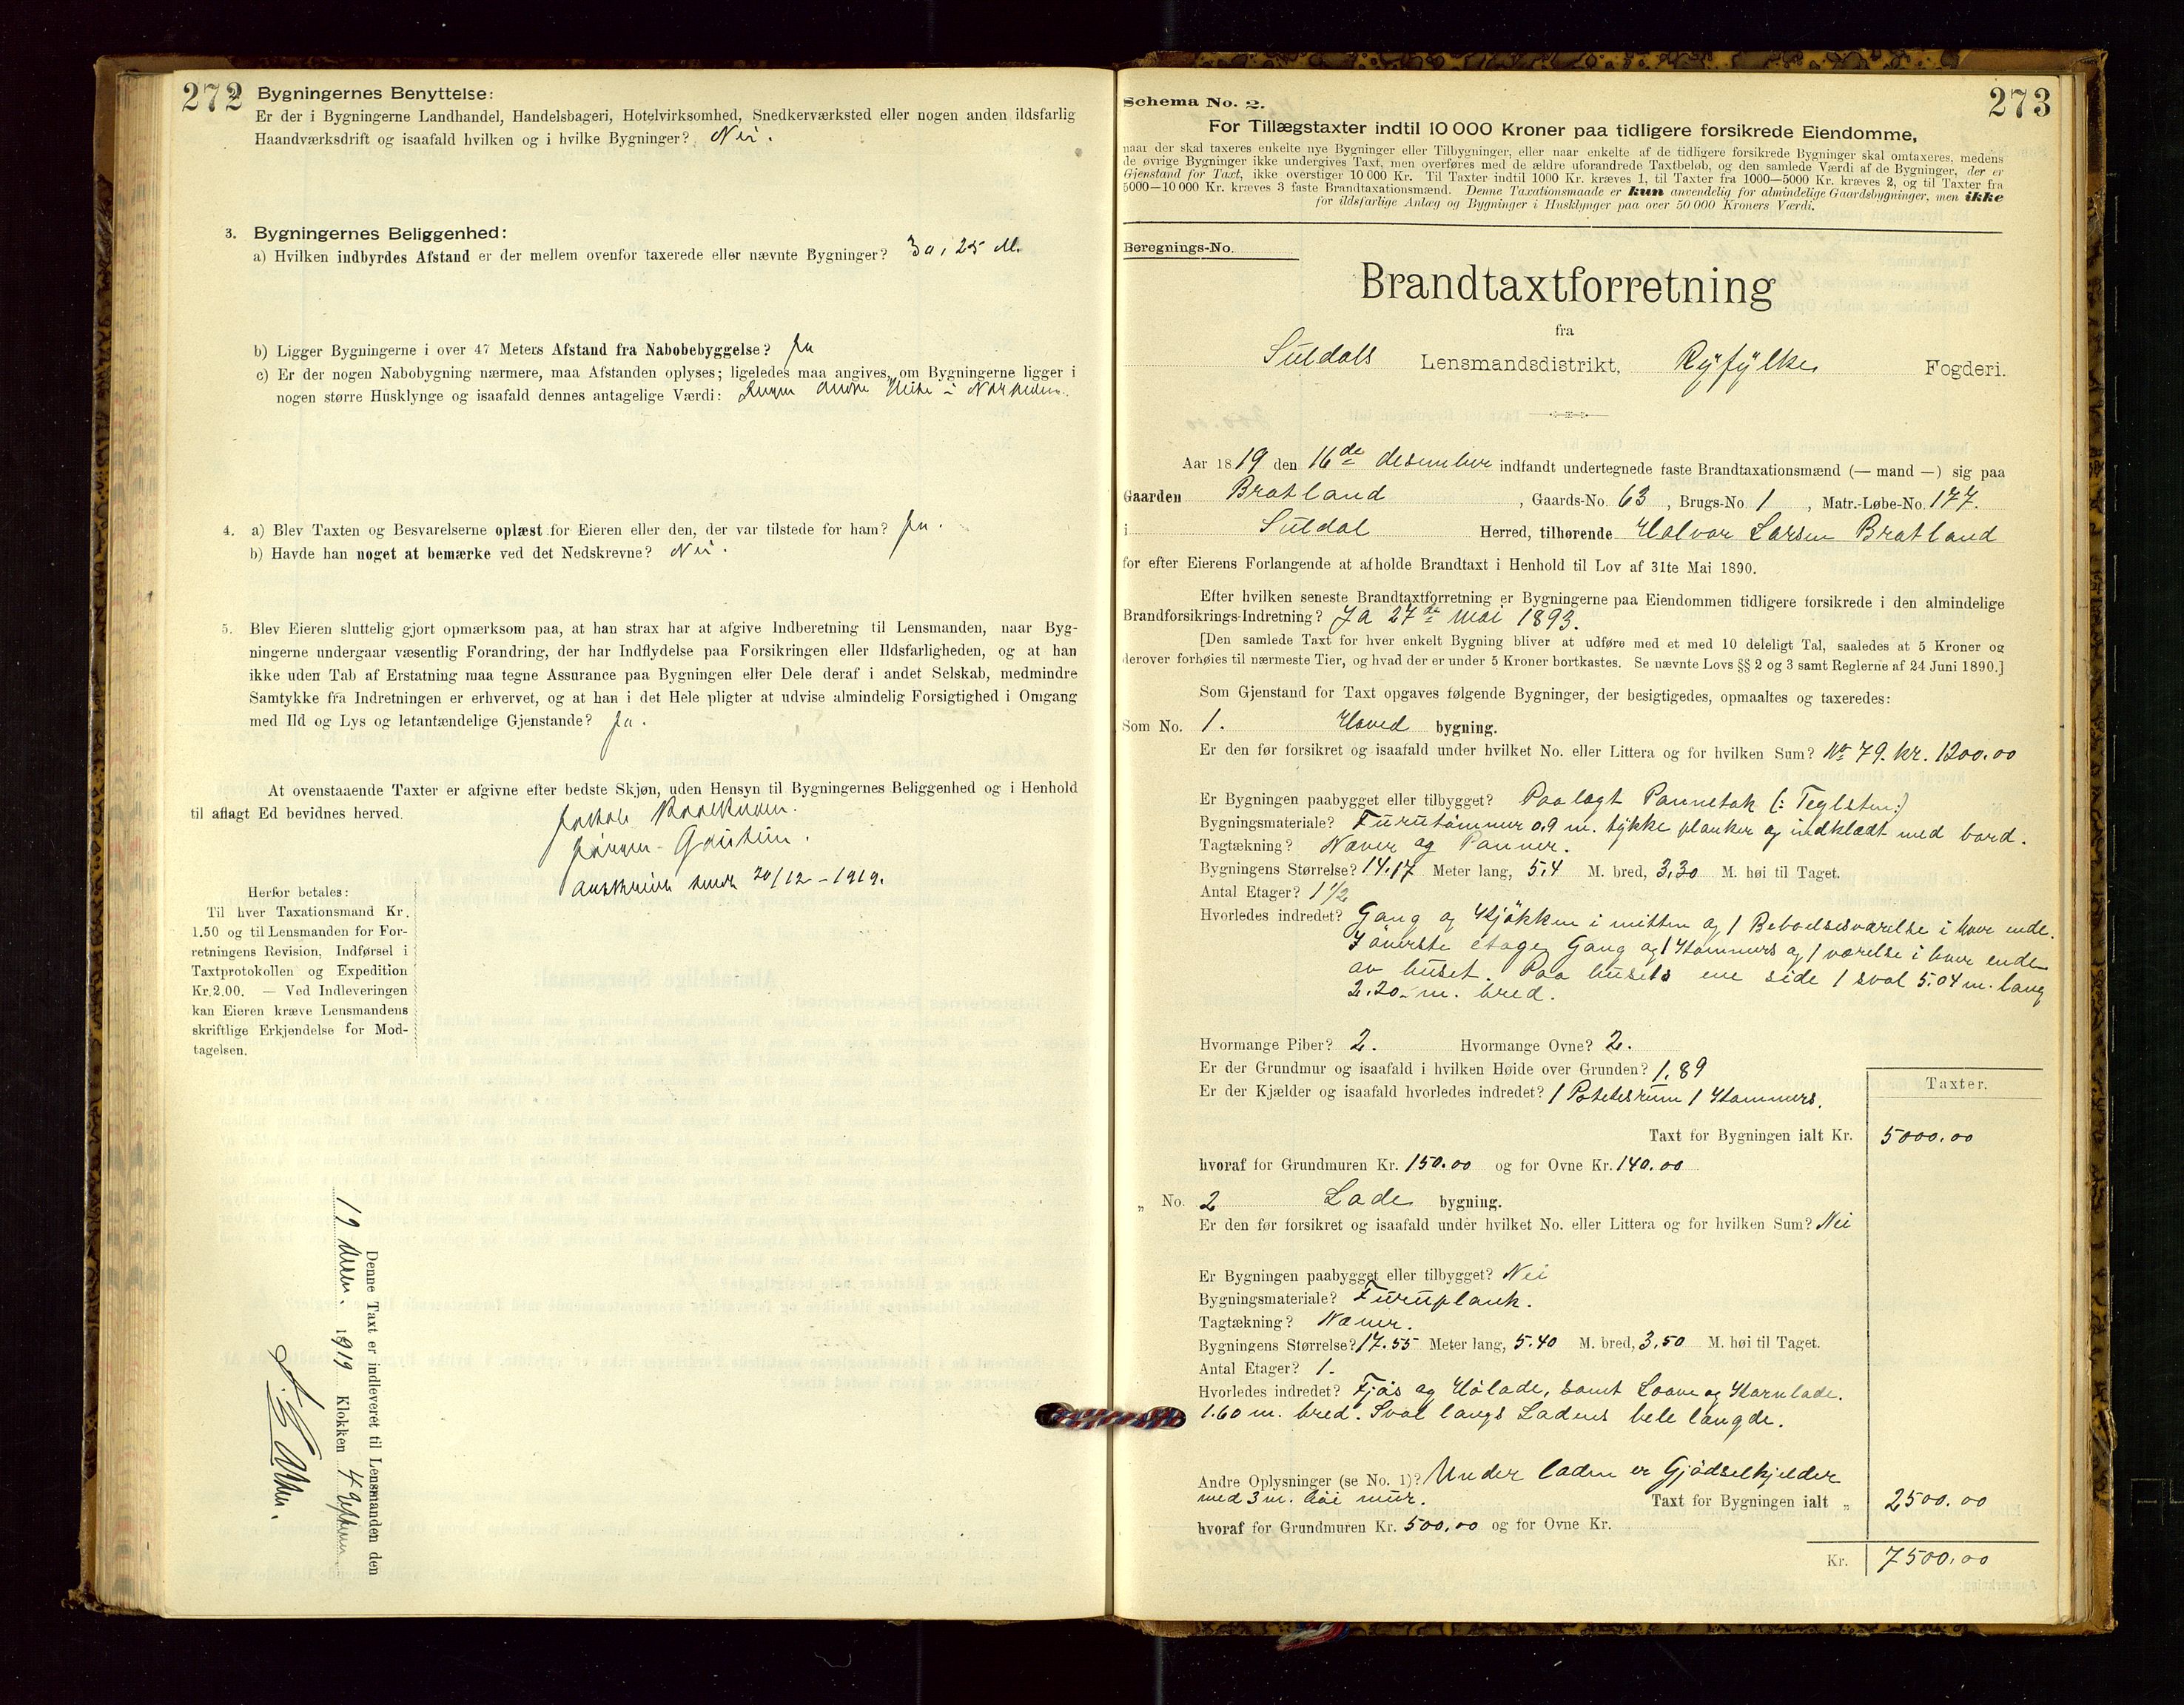 272
Bygningernes Benyttelse:
Er der i Bygningerne Landhandel, Handelsbageri, Hotelvirksomhed, Snedkerværksted eller nogen anden ildsfarlig
Haandværksdrift og isaafald hvilken og i hvilke Bygninger? Nei.
3. Bygningernes Beliggenhed:
a) Hvilken indbyrdes Afstand er der mellem ovenfor taxerede eller nævnte Bygninger? 30, 25 M.
b) Ligger Bygningerne i over 47 Meters Afstand fra Nabobebyggelse? Ja
c) Er der nogen Nabobygning nærmere, maa Afstanden oplyses; ligeledes maa angives, om Bygningerne ligger i
nogen større Husklynge og isaafald dennes antagelige Værdi: Ingen andre Huse i Nærheden.
4. a) Blev Taxten og Besvarelserne oplæst for Eieren eller den, der var tilstede for ham? Ja.
b) Havde han noget at bemærke ved det Nedskrevne? Nei.
5. Blev Eieren sluttelig gjort opmærksom paa, at han strax har at afgive Indberetning til Lensmanden, naar Byg-
ningerne undergaar væsentlig Forandring, der har Indflydelse paa Forsikringen eller Ildsfarligheden, og at han
ikke uden Tab af Erstatning maa tegne Assurance paa Bygningen eller Dele deraf i andet Selskab, medmindre
Samtykke fra Indretningen er erhvervet, og at han i det Hele pligter at udvise almindelig Forsigtighed i Omgang
med Ild og Lys og letantændelige Gjenstande? Ja.
At ovenstaaende Taxter er afgivne efter bedste Skjøn, uden Hensyn til Bygningernes Beliggenhed og i Henhold
til aflagt Ed bevidnes herved.
Jørgen Gautun.
20/12-1919.
Herfor betales:
Til hver Taxationsmand Kr.
1.50 og til Lensmanden for For-
retningens Revision, Indførsel i
Taxtprotokollen og Expedition
Kr.2.00. — Ved Indleveringen
kan Eieren kræve Lensmandens
skriftlige Erkjendelse for Mod-
tagelsen.
Denne Taxt er indleveret til Lensmanden den
19 1919 Klokken 4
273
Schema No. 2.
For Tillægstaxter indtil 10 000 Kroner paa tidligere forsikrede Eiendomme,
naar der skal taxeres enkelte nye Bygninger eller Tilbygninger, eller naar enkelte af de tidligere forsikrede Bygninger skal omtaxeres, medens
de øvrige Bygninger ikke undergives Taxt, men overføres med de ældre uforandrede Taxtbeløb, og den samlede Værdi af de Bygninger, der er
Gjenstand for Taxt, ikke overstiger 10 000 Kr. Til Taxter indtil 1000 Kr. kræves 1, til Taxter fra 1000—5000 Kr. kræves 2, og til Taxter fra
5000—10 000 Kr. kræves 3 faste Brandtaxationsmænd. Denne Taxationsmaade er kun anvendelig for almindelige Gaardsbygninger, men ikke
for ildsfarlige Anlæg og Bygninger i Husklynger paa over 50 000 Kroners Værdi.
Beregnings-No.
Brandtaxtforretning
fra
Suldals Lensmandsdistrikt, Ryfylke Fogderi.
Aar 1819 den 16de desember indfandt undertegnede faste Brandtaxationsmænd (— mand —) sig paa
Gaarden Bratland, Gaards-No. 63, Brugs-No. 1, Matr.-Løbe-No. 177.
i Suldal Herred, tilhørende Halvor Larsen Bratland
for efter Eierens Forlangende at afholde Brandtaxt i Henhold til Lov af 31te Mai 1890.
Efter hvilken seneste Brandtaxtforretning er Bygningerne paa Eiendommen tidligere forsikrede i den almindelige
Brandforsikrings-Indretning? Ja 27de mai 1893.
[Den samlede Taxt for hver enkelt Bygning bliver at udføre med et med 10 deleligt Tal, saaledes at 5 Kroner og
derover forhøies til nærmeste Tier, og hvad der er under 5 Kroner bortkastes. Se nævnte Lovs §§ 2 og 3 samt Reglerne af 24 Juni 1890.]
Som Gjenstand for Taxt opgaves følgende Bygninger, der besigtigedes, opmaaltes og taxeredes:
Som No. 1. Hoved bygning.
Er den før forsikret og isaafald under hvilket No. eller Littera og for hvilken Sum? No 79. kr. 1200.00
Er Bygningen paabygget eller tilbygget? Paalagt Pannetak (: Teglsten :)
Bygningsmateriale? Furutømmer 0,9 m. tykke planker og indklædt med bord.
Tagtækning? Næver og Panner.
Bygningens Størrelse? 14.17 Meter lang, 5,4 M. bred, 3,30 M. høi til Taget.
Antal Etager? 1 1/2
Hvorledes indredet? Gang og Kjøkken i mitten og 1 Beboelsesværelse i hver ende.
I øverste etage Gang og 1 Kammers og 1 værelse i hver ende
av huset. Paa husets ene side 1 sval 5.04 m. lang
2.20 m. bred.
Hvormange Piber? 2. Hvormange Ovne? 2.
Er der Grundmur og isaafald i hvilken Høide over Grunden? 1.89
Er der Kjælder og isaafald hvorledes indredet? 1 Potetesrum 1 Kammers.
Taxter.
Taxt for Bygningen ialt Kr. 5000.00
hvoraf for Grundmuren Kr. 150.00 og for Ovne Kr. 140.00
„ No. 2 Lade bygning.
Er den før forsikret og isaafald under hvilket No. eller Littera og for hvilken Sum? Nei
Er Bygningen paabygget eller tilbygget? Nei
Bygningsmateriale? Furuplank.
Tagtækning? Næver.
Bygningens Størrelse? 17.55 Meter lang, 5.40 M. bred, 3,50 M. høi til Taget.
Antal Etager? 1.
Hvorledes indredet? Fjøs og Hølade, samt Loave og Kornlade.
1.60 m. bred. Sval langs Ladens hele længde.
Andre Oplysninger (se No. 1)? Under laden er Gjødselkjelder
med 3 m. høi mur. Taxt for Bygningen ialt „ 2500.00
hvoraf for Grundmuren Kr. 500.00 og for Ovne Kr.
Kr. 7500.00